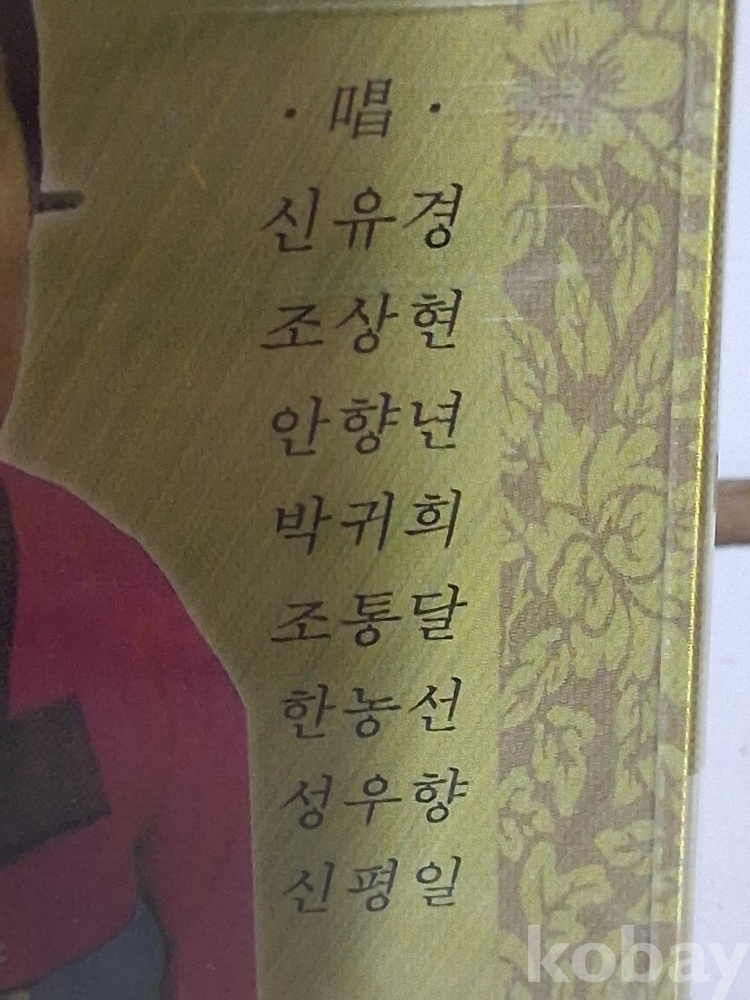 · 唱 ·
신유경
조상현
안향년
박귀희
조통달
한농선
성우향
신평일
kobay